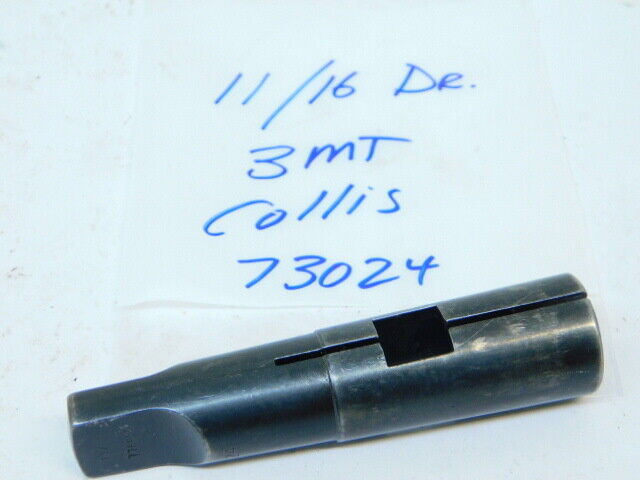 11/16 DR.
3MT
Collis
73024